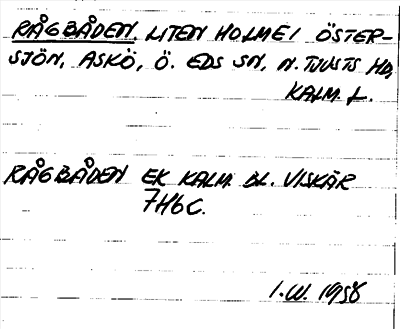 RÅGBÅDEN. LITEN HOLME I ÖSTER-
SJÖN, ASKÖ, Ö. EDS SN, N. TJUSTS HD,
KALM. L.
RÅGBÅDEN EK KALM. BL. VISKÄR
7H6C.
I.W. 1958